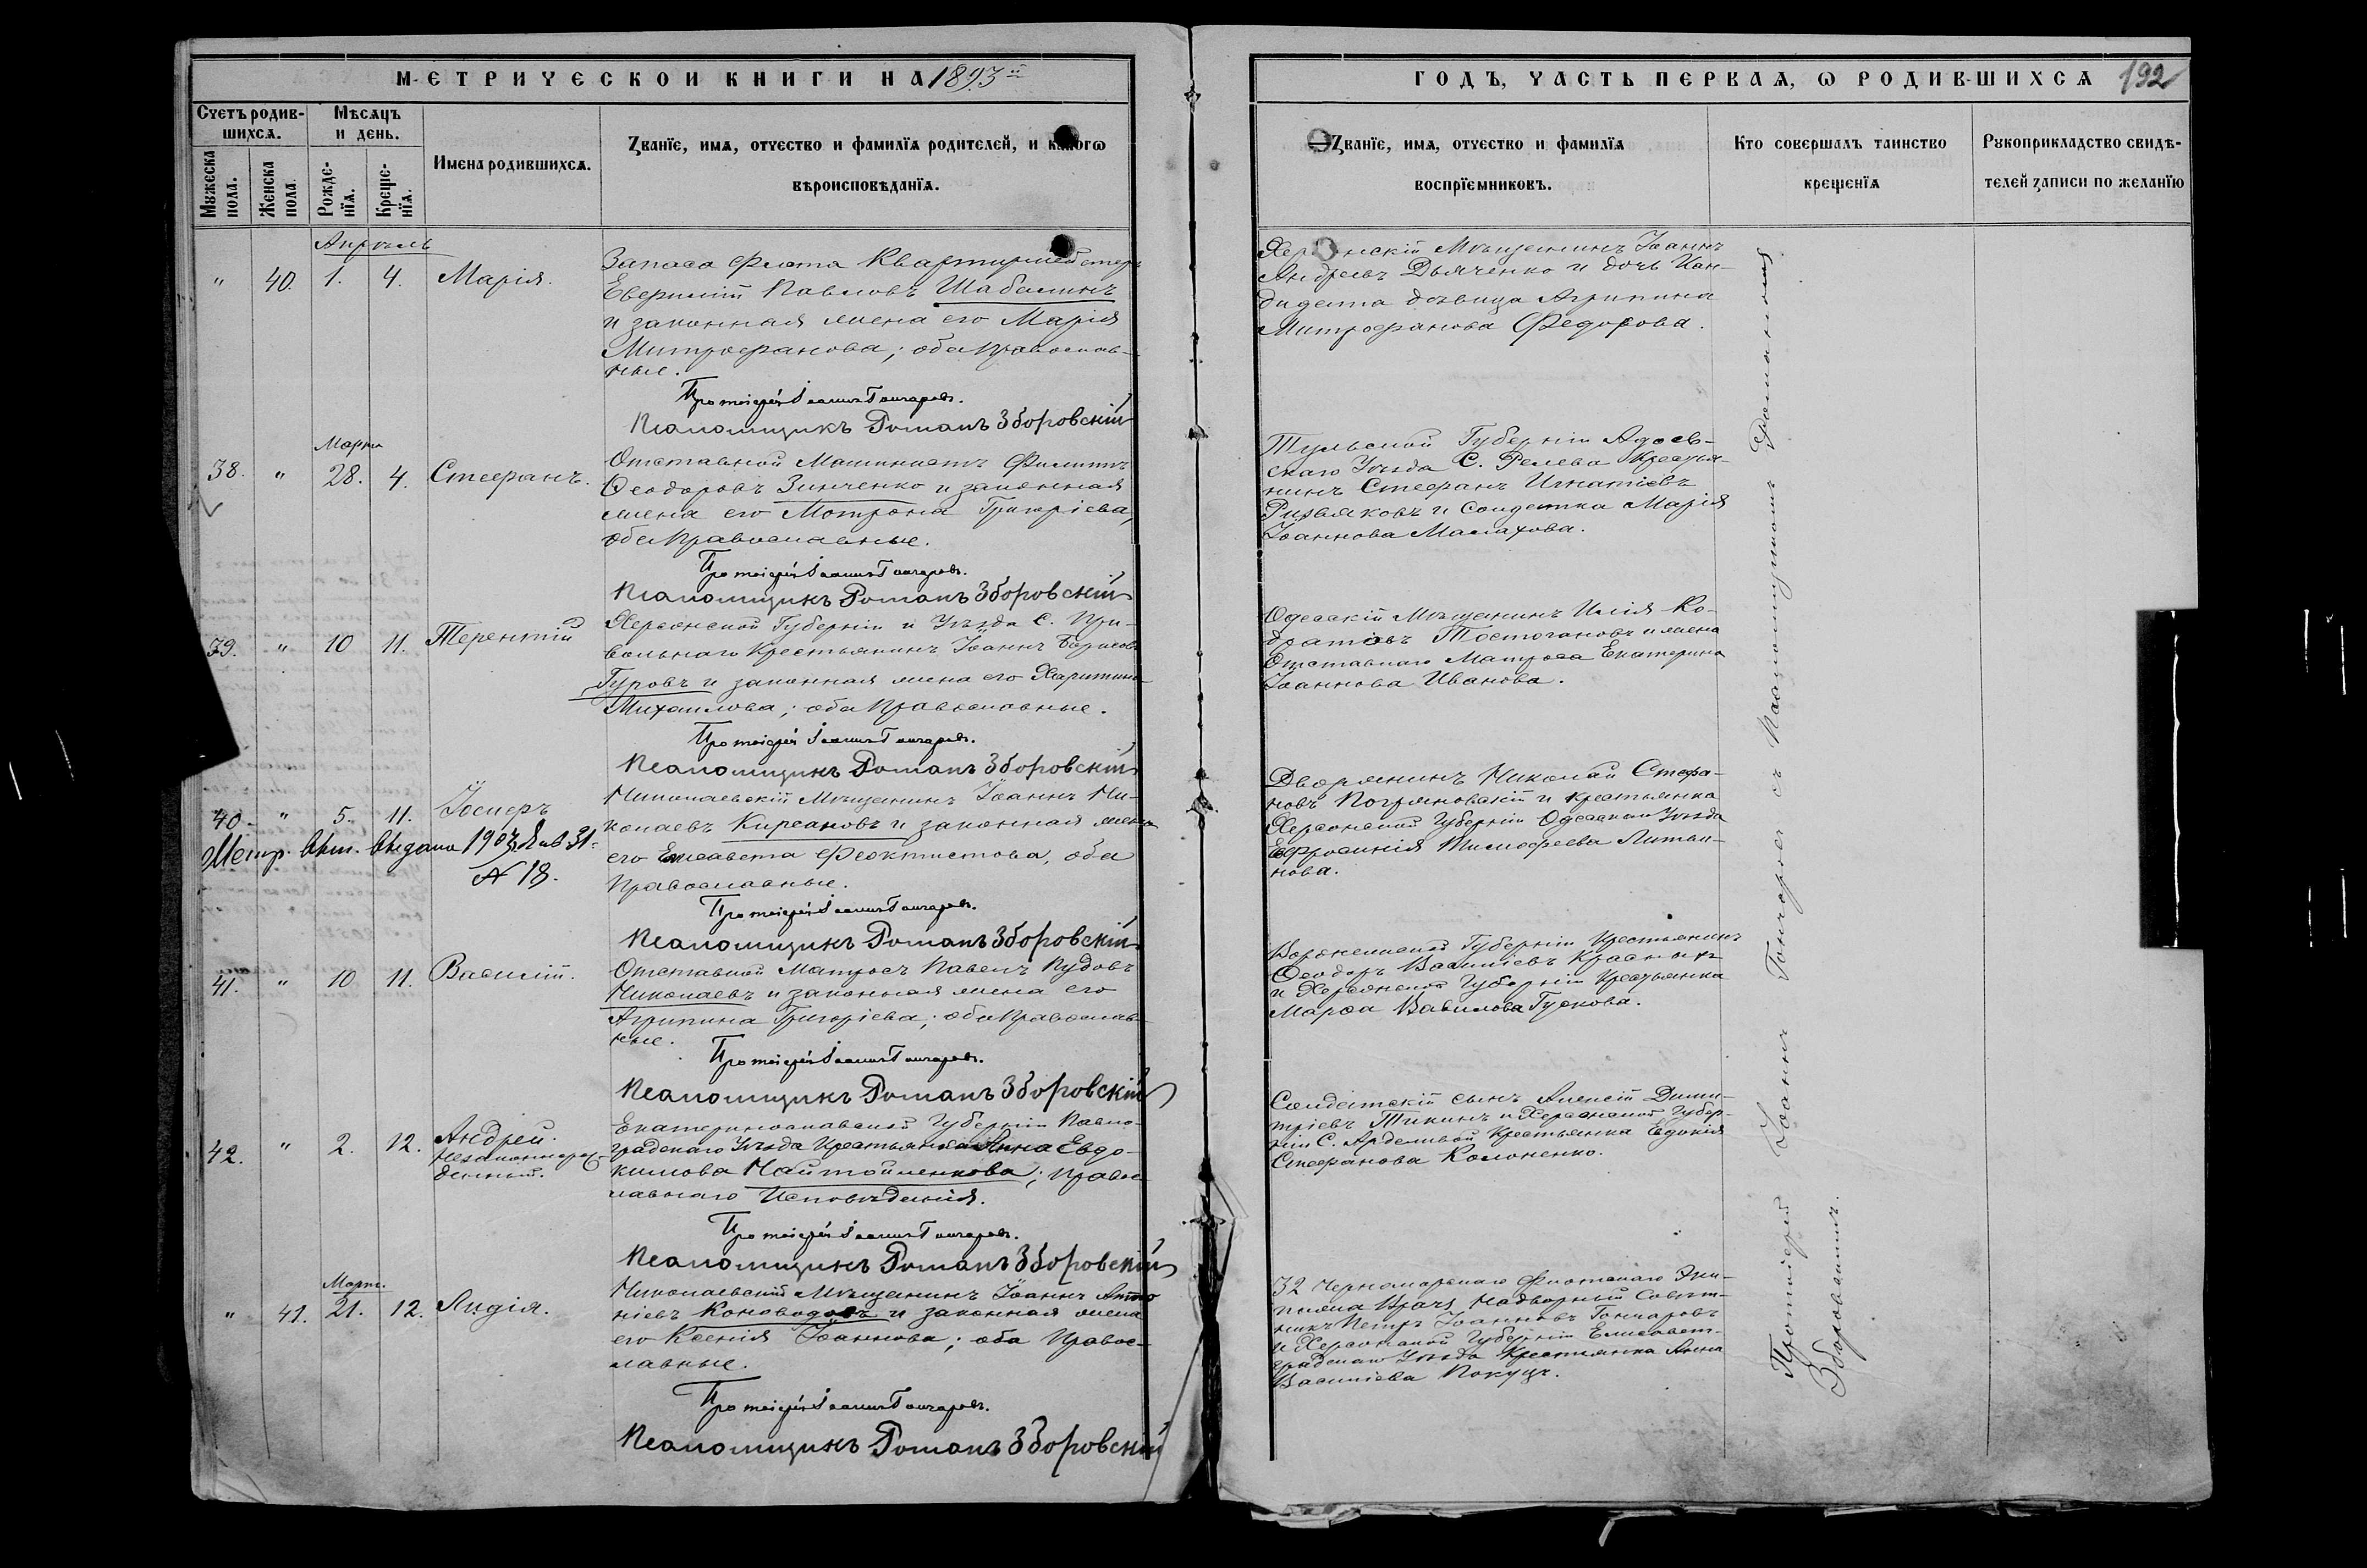 МЕТРИЧЕСКОЙ КНИГИ НА 1893 й
ГОДЪ, ЧАСТЬ ПЕРВАЯ, Ѡ РОДИВШИХСЯ 192
Счетъ родив-
шихся.
Мѣсяцъ
и день.
Мужеска
пола.
Женска
пола.
Рожде-
нїя.
Креще-
нїя.
Имена родившихся.
Званїе, имя, отчество и фамилїя родителей, и какогѡ
вѣроисповѣданїя.
Званїе, имя, отчество и фамилїя
воспрїемниковъ.
Кто совершалъ таинство
крещенїя
Рукоприкладство свидѣ-
телей записи по желанїю
Апрѣль
" 40. 1. 4. Марія.
Запаса Флота Квартирмейстеръ
Павловъ Шабалинъ
и законная жена его Марія
Митрофанова; оба Православ-
ные.
Протоіерей Іоаннъ Гончаровъ.
Псаломщикъ Романъ Зборовскій
Херсонскій Мѣщанинъ Іоаннъ
Андреевъ Дьяченко и дочь Кан-
дидата дѣвица Агрипина
Митрофанова Федорова.
Марта
38. " 28. 4. Стефанъ.
Отставной Машинистъ Филиппъ
Ѳеодоровъ Зинченко и законная
жена его Мотрона Григоріева,
оба Православные.
Протоіерей Іоаннъ Гончаровъ.
Псаломщикъ Романъ Зборовскій
Тульской Губерніи Адоев-
скаго Уѣзда С. Крестья-
нинъ Стефанъ Игнатіевъ
и Солдатка Марія
Іоаннова Малахова.
39. " 10 11. Терентій
Херсонской Губерніи и Уѣзда С. При-
вольнаго Крестьянинъ Іоаннъ Борисовъ
Гуровъ и законная жена его Харитина
Михаилова; оба Православные.
Протоіерей Іоаннъ Гончаровъ.
Псаломщикъ Романъ Зборовскій
Одесскій Мѣщанинъ Илія Ко-
дратіевъ и жена
Отставнаго Матроса Екатерина
Іоаннова Иванова.
40. " 5. 11. Іосифъ
Метр. вып. выдана 1907 г. Янв 31.
№ 18.
Николаевскій Мѣщанинъ Іоаннъ Ни-
колаевъ Кирсановъ и законная жена
его Елисавета Феоктистова, оба
Православные.
Протоіерей Іоаннъ Гончаровъ.
Псаломщикъ Романъ Зборовскій
Дворянинъ Николай Стефа-
новъ и крестьянка
Херсонской Губерніи Одесскаго Уѣзда
Евфросинія Тимофеева Литви-
нова.
41. " 10 11. Василій.
Отставной Матросъ Павелъ Пудовъ
Николаевъ и законная жена его
Агрипина Григоріева; оба Православ-
ные.
Протоіерей Іоаннъ Гончаровъ.
Псаломщикъ Романъ Зборовскій
Воронежской Губерніи Крестьянинъ
Ѳеодоръ Василіевъ Красныхъ
и Херсонской Губерніи Крестьянка
Марѳа Вавилова Гускова.
42. " 2. 12. Андрей.
Незаконнорож-
денный.
Екатеринославской Губерніи Павло-
градскаго Уѣзда Крестьянка Анна Евдо-
кимова; Правос-
лавнаго Исповѣданія.
Протоіерей Іоаннъ Гончаровъ.
Псаломщикъ Романъ Зборовскій
Солдатскій сынъ Алексій Дими-
тріевъ Тикинъ и Херсонской Губер-
ніи С. Крестьянка Евдокія
Стефанова Колоненко.
Март.
" 41. 21. 12. Лидія.
Николаевскій Мѣщанинъ Іоаннъ Анто
ніевъ Коноводовъ и законная жена
его Ксенія Іоаннова; оба Правос-
лавные.
Протоіерей Іоаннъ Гончаровъ.
Псаломщикъ Романъ Зборовскій
32 Черноморскаго Флотскаго Эки-
пажа Врачъ Надворный Совѣт-
никъ Петръ Іоанновъ Гончаровъ
и Херсонской Губерніи Елисавет-
градскаго Уѣзда Крестьянка Анна
Василіева Покуцъ.
Протоіерей Іоаннъ Гончаровъ съ Псаломщикомъ Романомъ
Зборовскимъ.